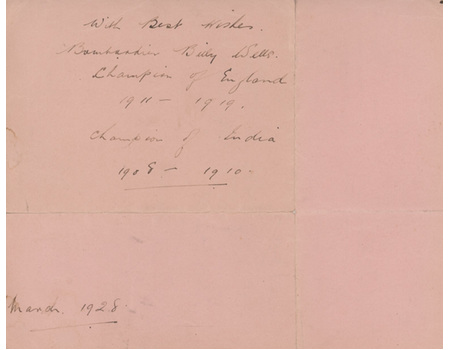 With Best Wishes.
Bombardier Billy Wells.
Champion of England
1911 - 1919.
Champion of India
1908 - 1910.
March. 1928.